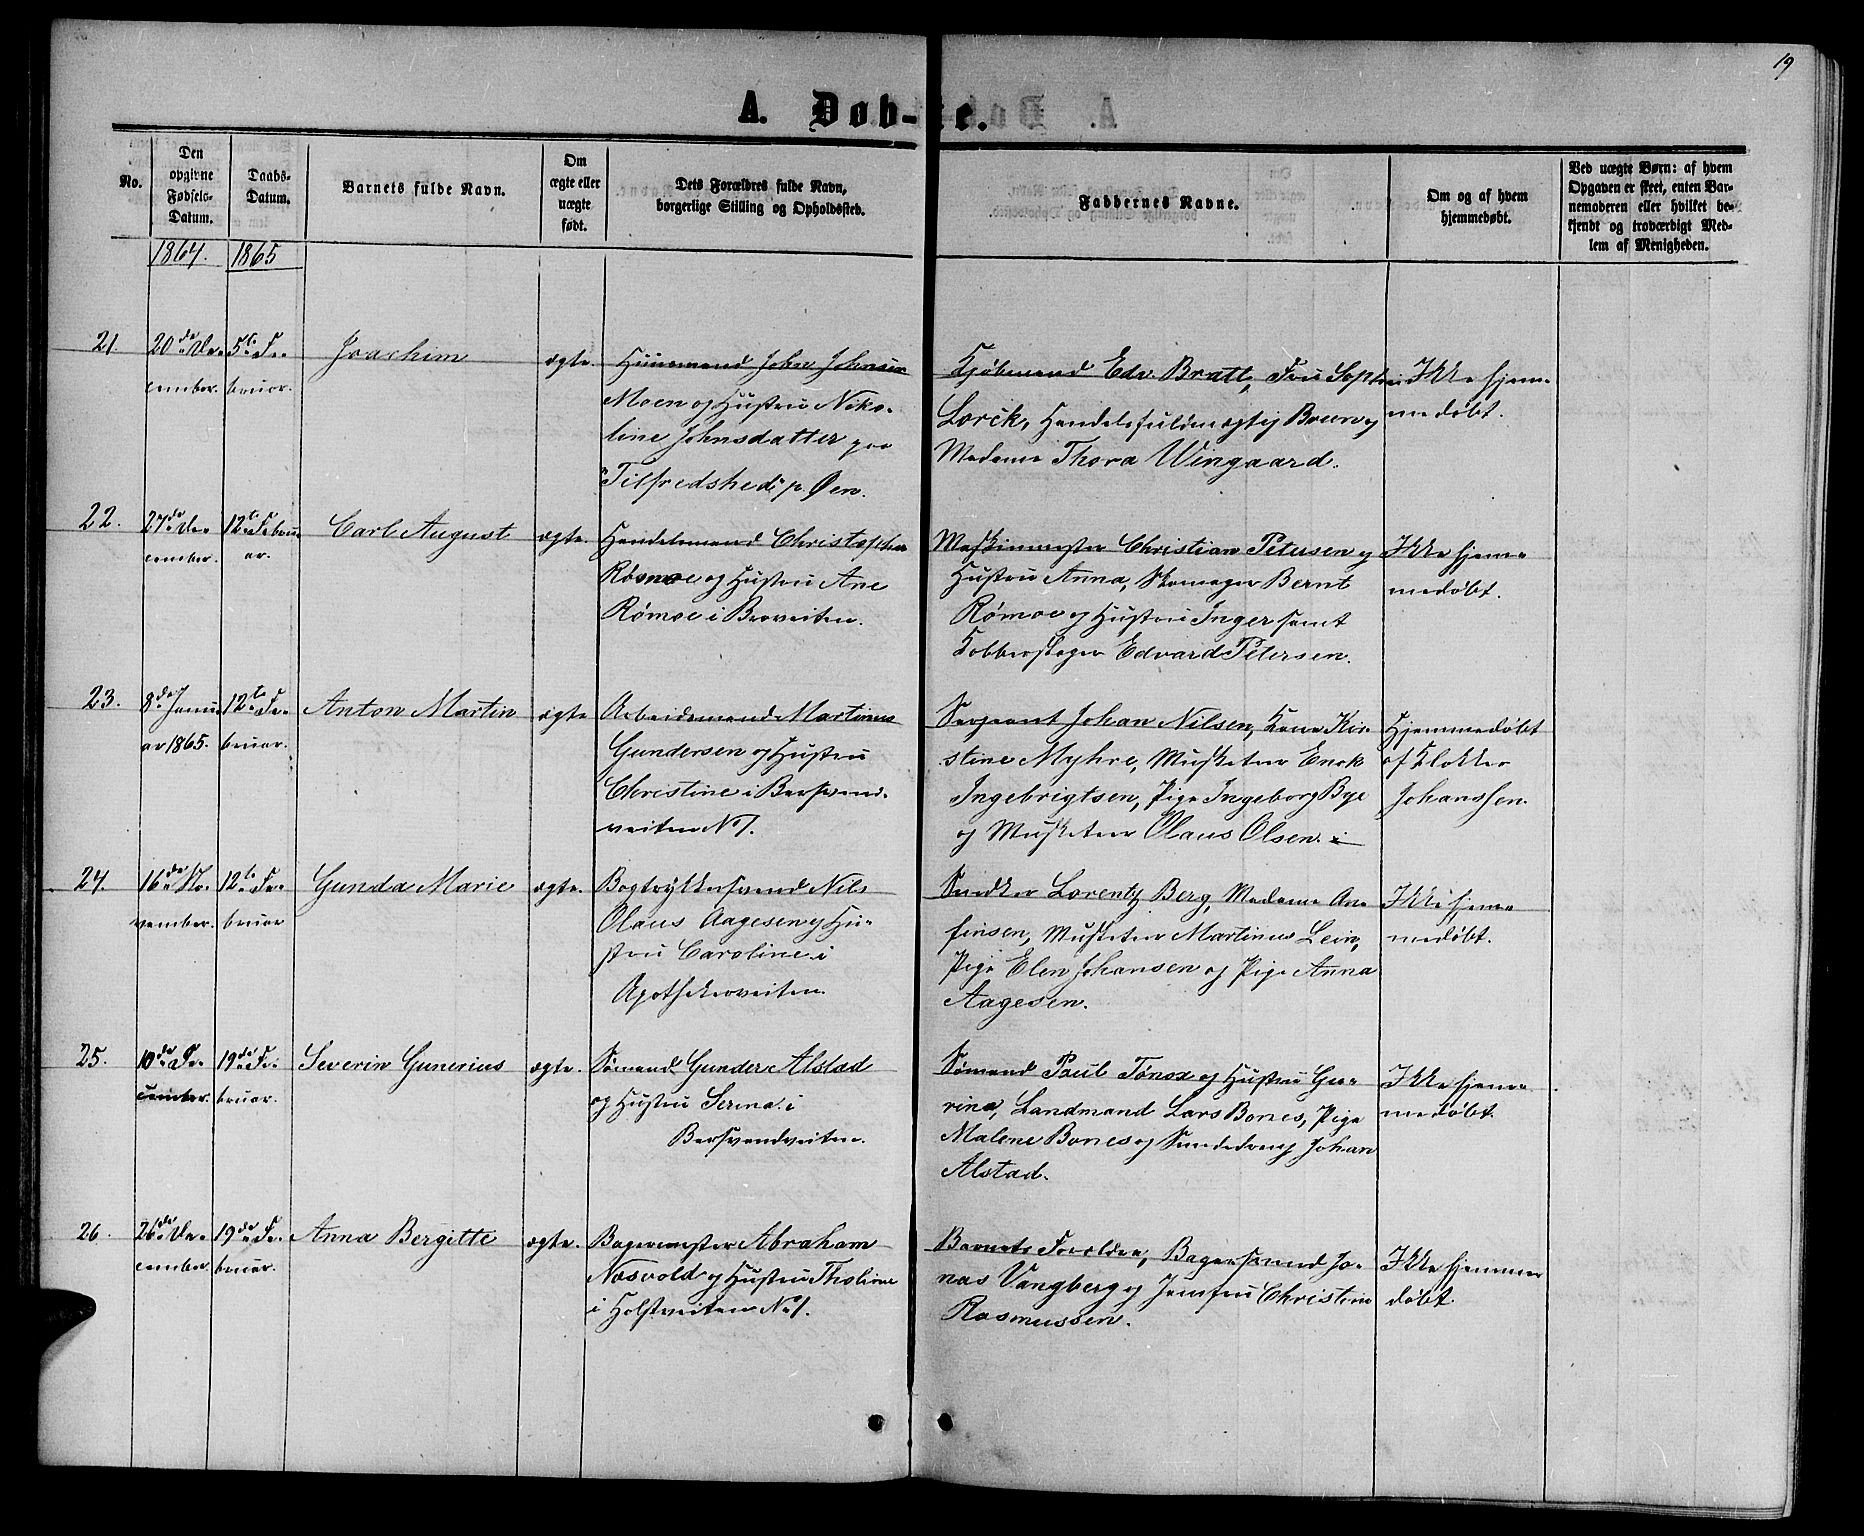 19
A. Døb-te.
No.
Den opgivne Fødsels-Datum.
Daabs-Datum.
Barnets fulde Navn.
Om ægte eller uægte født.
Dets Forældres fulde Navn, borgerlige Stilling og Opholdssted.
Faddernes Navne.
Om og af hvem hjemmedøbt.
Ved uægte Børn: af hvem Opgaven er skeet, enten Barnemoderen eller hvilket bekjendt og troværdigt Medlem af Menigheden.
1864. 1865
21.
20de De-
cember.
5te Fe-
bruar.
Joachim
ægte.
Huusmand John Johnsen
Moen og Hustru Niko-
line Johnsdatter paa
"Tilfredshed" p. Øen.
Kjøbmand Edv. Bratt, Fru Sophie
Lorck, Handelsfuldmægtig Bruun og
Madame Thora Wingaard.
Ikke hjem-
medøbt.
22.
27de De-
cember.
12te Febru-
ar.
Carl August
ægte.
Handelsmand Christopher
Rømoe og Hustru Ane
Rømoe i Broveiten.
Maskinmester Christian Petersen og
Hustru Anna, Skomager Bernt
Rømoe og Hustru Inger samt
Kobberslager Edvard Petersen.
Ikke hjem-
medøbt.
23.
8de Janu-
ar 1865.
12te Fe-
bruar.
Anton Martin
ægte
Arbeidsmand Martinus
Gundersen og Hustru
Christine i Bersvend-
veiten No 1.
Sergeant Johan Nilsen, Kone Kir-
stine Myhre, Musketeer Enok
Ingebrigtsen, Pige Ingeborg Bye
og Musketeer Olaus Olsen.
Hjemmedøbt
af Klokker
Johanssen.
24.
16de No-
vember.
12te Fe-
bruar
Gunda Marie
ægte.
Bogtrykkersvend Nils
Olaus Aagesen og Hu-
stru Caroline i
Apothekerveiten.
Snedker Lorentz Berg, Madame Arn-
finsen, Musketeer Martinus Lein,
Pige Elen Johansen og Pige Anna
Aagesen.
Ikke hjem-
medøbt.
25.
10de De-
cember.
19de Fe-
bruar.
Severin Gunerius
ægte.
Sømand Gunder Alstad
og Hustru Serina i
Bersvendveiten.
Sømand Paul Tønox og Hustru Gu-
rina, Landmand Lars Bones, Pige
Malene Bones og Smededreng Johan
Alstad.
Ikke hjem-
medøbt.
26.
26de De-
cember
19de Fe-
bruar.
Anna Bergitte
ægte.
Bagermester Abraham
Næsvold og Hustru Tholine
i Holstveiten No 1.
Barnets Forældre, Bagersvend Jo-
nas Vangberg og Jomfru Christine
Rasmussen.
Ikke hjemme-
døbt.